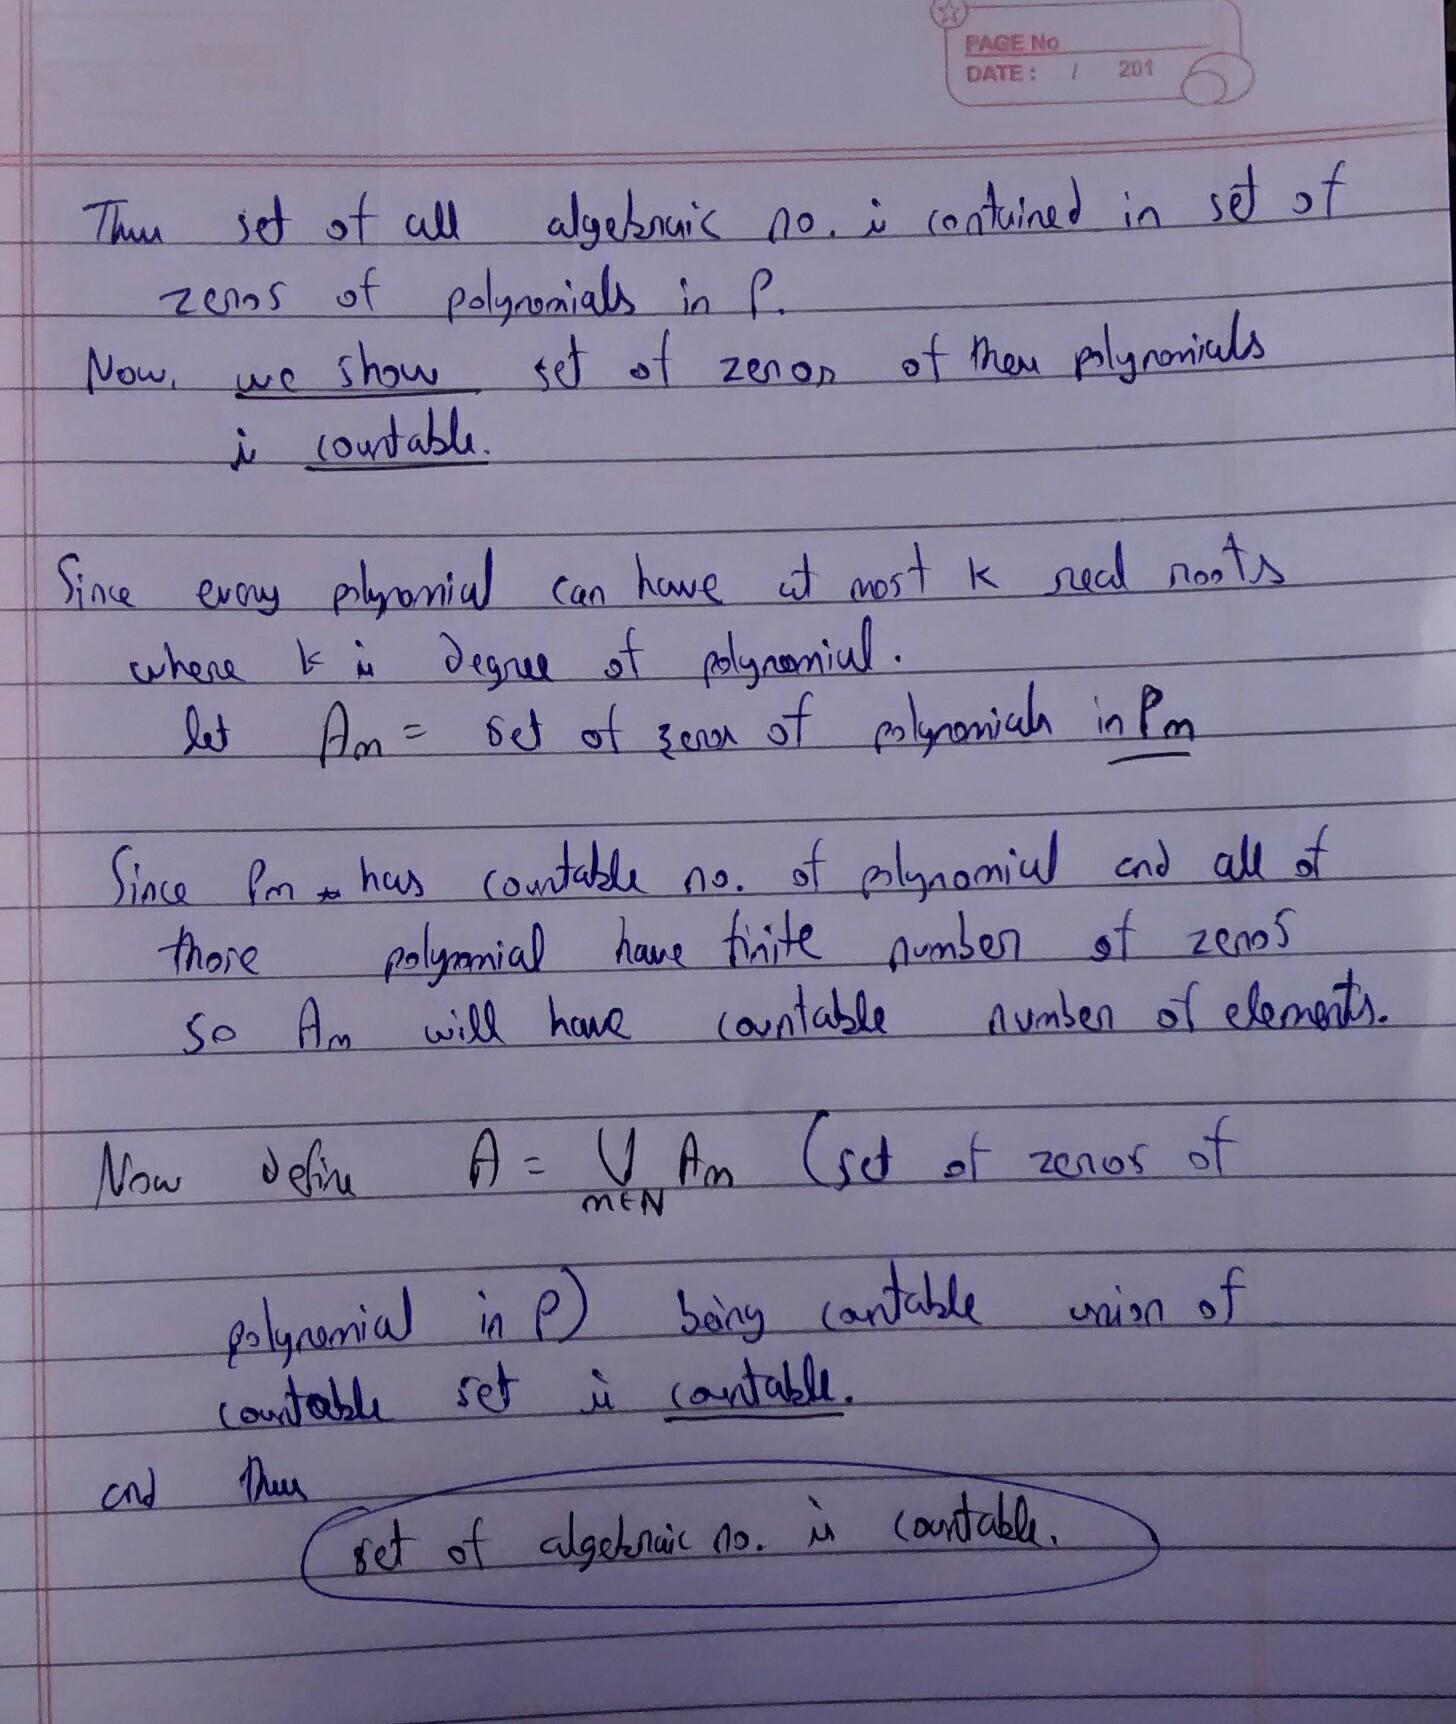 PAGE No
DATE: / 201
5
Thus set of all algebraic no. is contained in set of
zeros of polynomials in P.
Now, we show set of zeros of these polynomials
is countable.
Since every polynomial can have at most k real roots
where k is degree of polynomial.
let Am = set of zeros of polynomials in Pm
Since Pm has countable no. of polynomial and all of
those polynomial have finite number of zeros
so Am will have countable number of elements.
Now define A = ⋃ Am (set of zeros of
m∈N
polynomial in P) being countable union of
countable set is countable.
and thus
set of algebraic no. is countable.